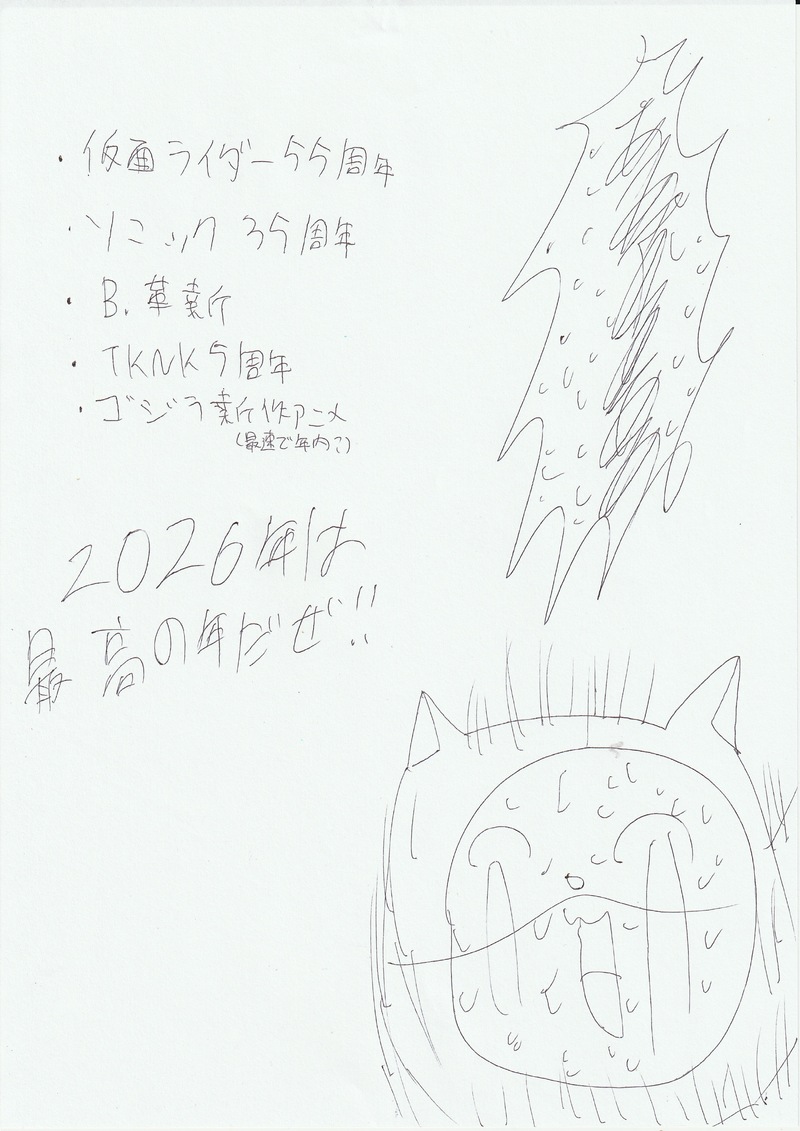 ・仮面ライダー55周年
・ソニック 35周年
・B.革新
・TKNK5周年
・ゴジラ新作アニメ
(最速で年内に)
2026年は
最高の年だぜ!!
あああああ